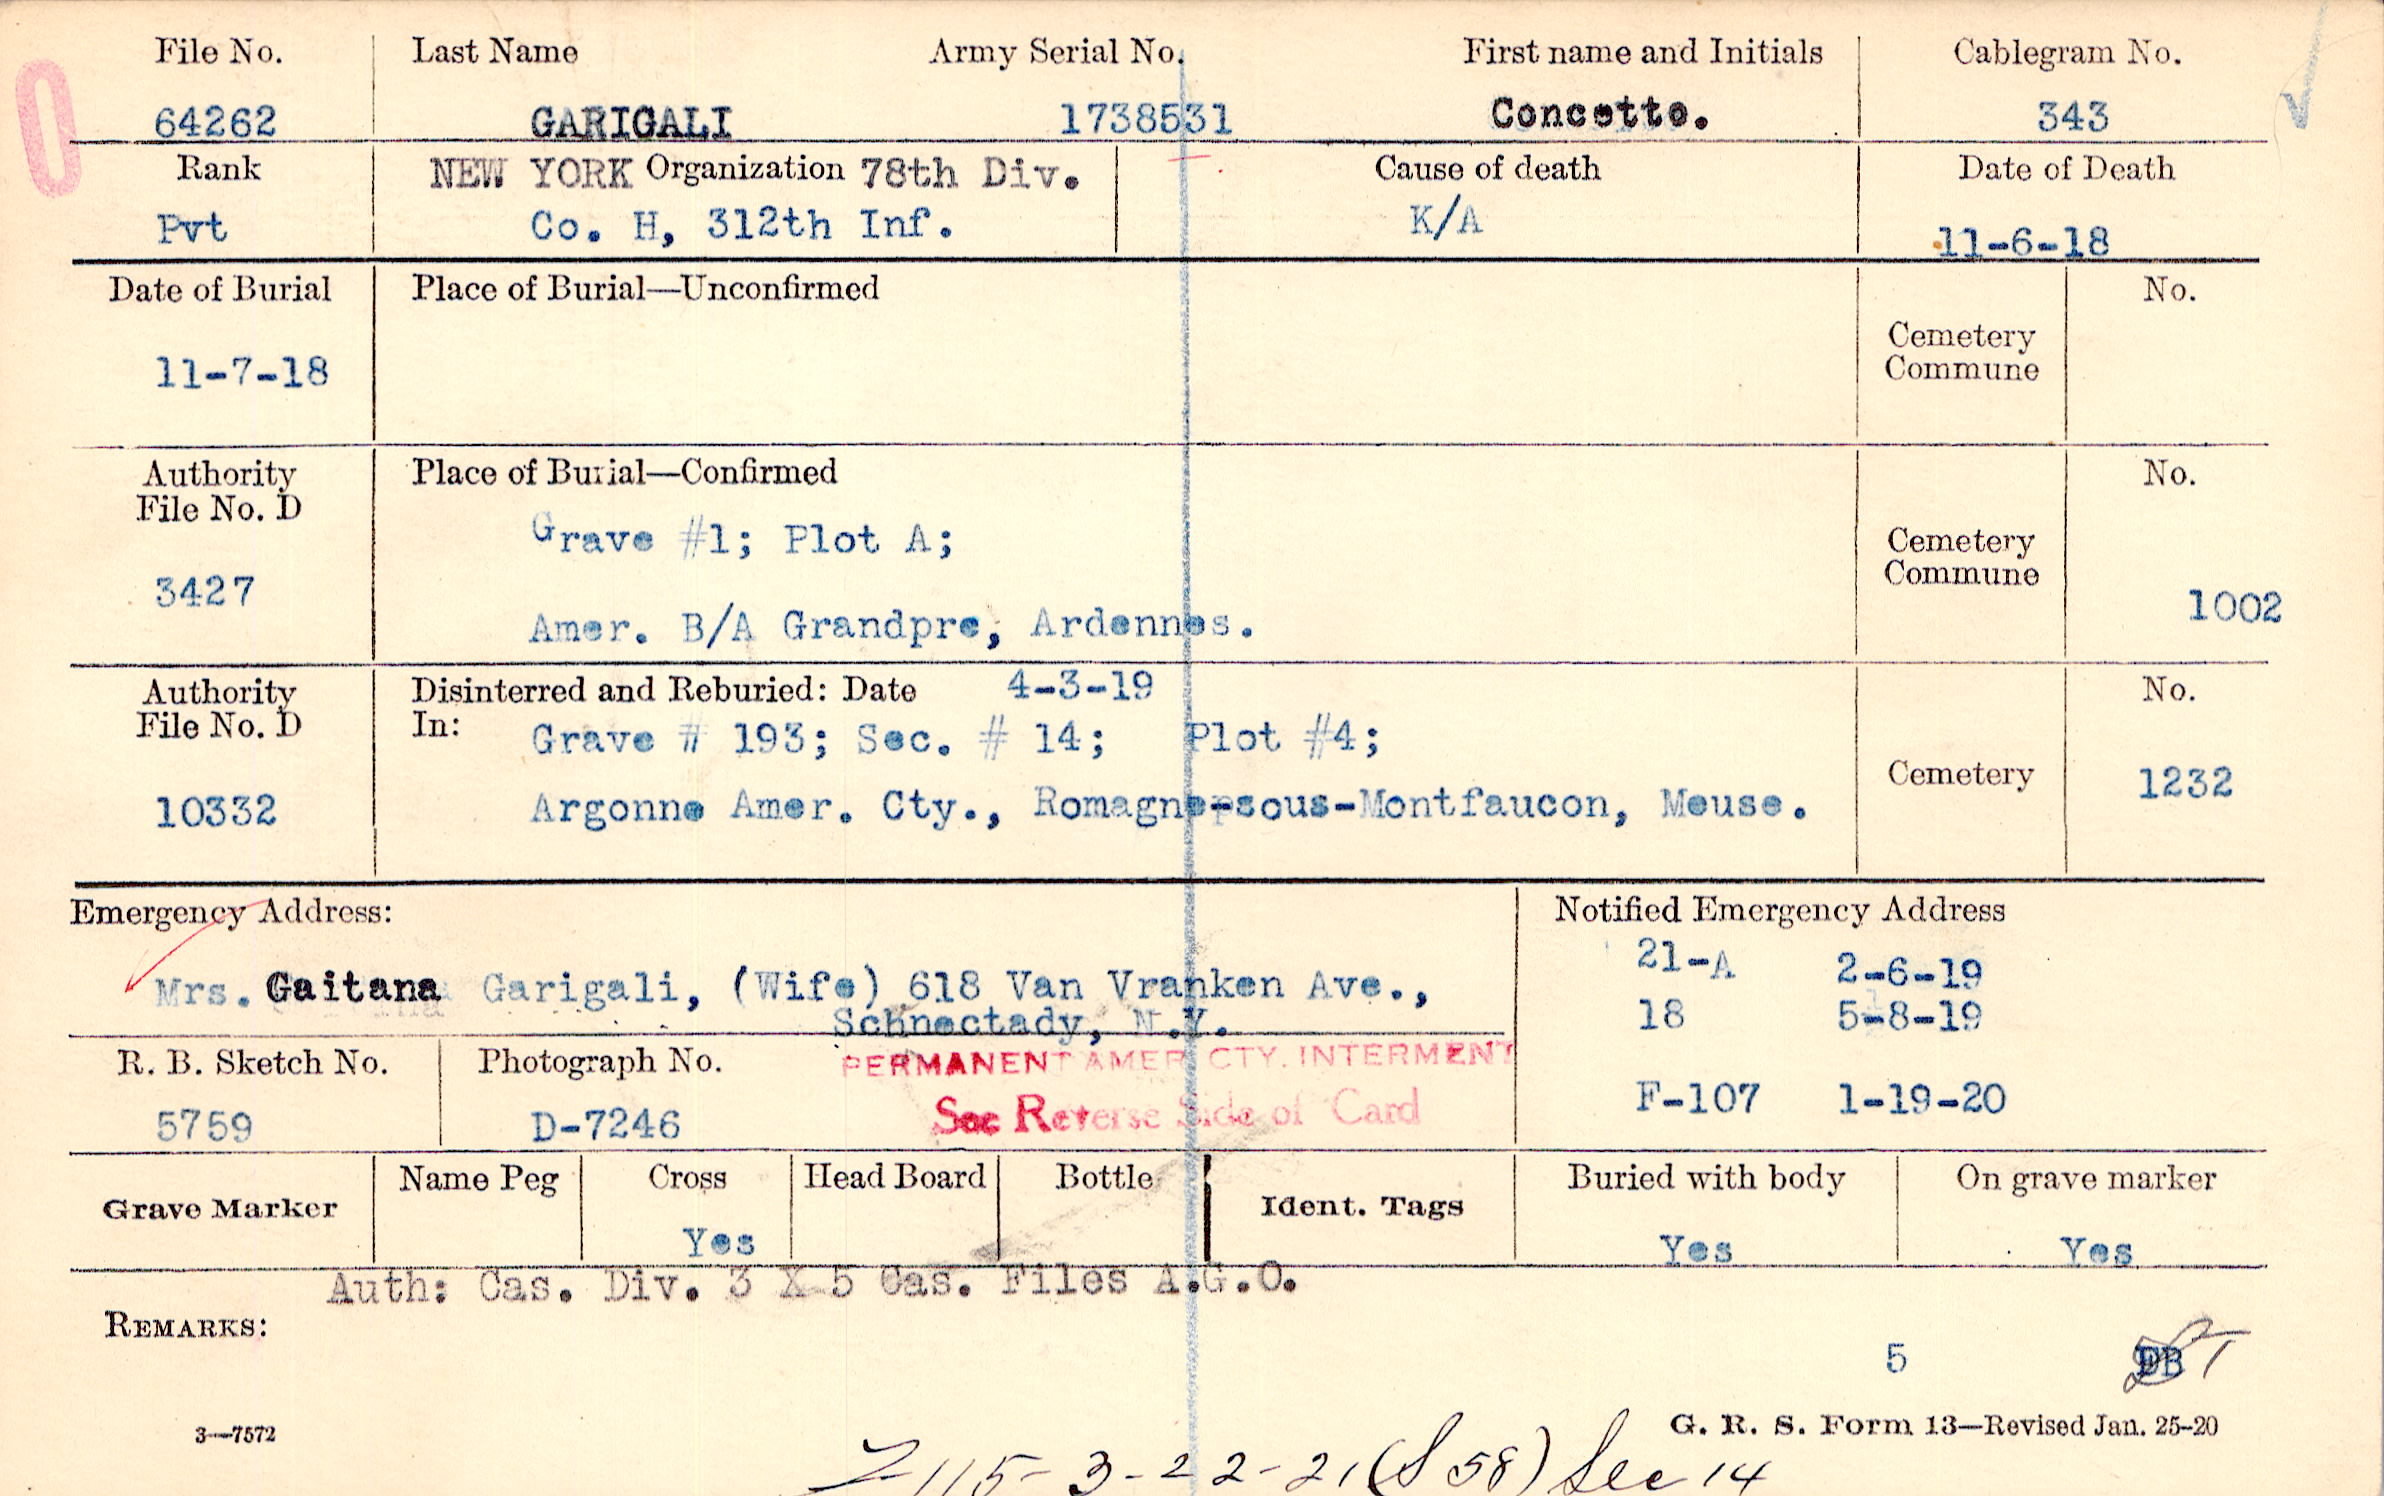 File No. Last Name Army Serial No. First name and Initials Cablegram No.
64262 GARIGALI 1738531 Concetto. 343
Rank NEW YORK Organization 78th Div. Cause of death Date of Death
Pvt Co. H, 312th Inf. K/A 11-6-18
Date of Burial Place of Burial—Unconfirmed No.
Cemetery
Commune
11-7-18
Authority Place of Burial—Confirmed No.
File No. D
Grave #1; Plot A; Cemetery
Commune
3427 1002
Amer. B/A Grandpre, Ardennes.
Authority Disinterred and Reburied: Date 4-3-19 No.
File No. D In: Grave # 193; Sec. # 14; Plot #4;
Cemetery 1232
10332 Argonne Amer. Cty., Romagne-sous-Montfaucon, Meuse.
Emergency Address: Notified Emergency Address
21-A 2-6-19
Mrs. Gaitana Garigali, (Wife) 618 Van Vranken Ave.,
Schnectady, N.Y. 18 5-8-19
R. B. Sketch No. Photograph No. PERMANENT AMER CTY. INTERMENT
5759 D-7246 See Reverse Side of Card F-107 1-19-20
Grave Marker Name Peg Cross Head Board Bottle Ident. Tags Buried with body On grave marker
Yes Yes Yes
Auth: Cas. Div. 3 X 5 Cas. Files A.G.O.
REMARKS:
5
3—7572 G. R. S. Form 13—Revised Jan. 25-20
115- 3-22-21 (S 58) Sec 14